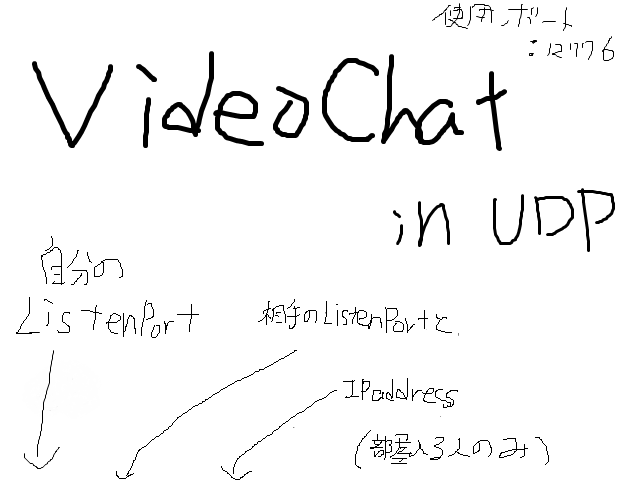 使用ポート
:12776
VideoChat
in UDP
自分の
ListenPort
相手のListenPortと
IPaddress
(部屋入る人のみ)